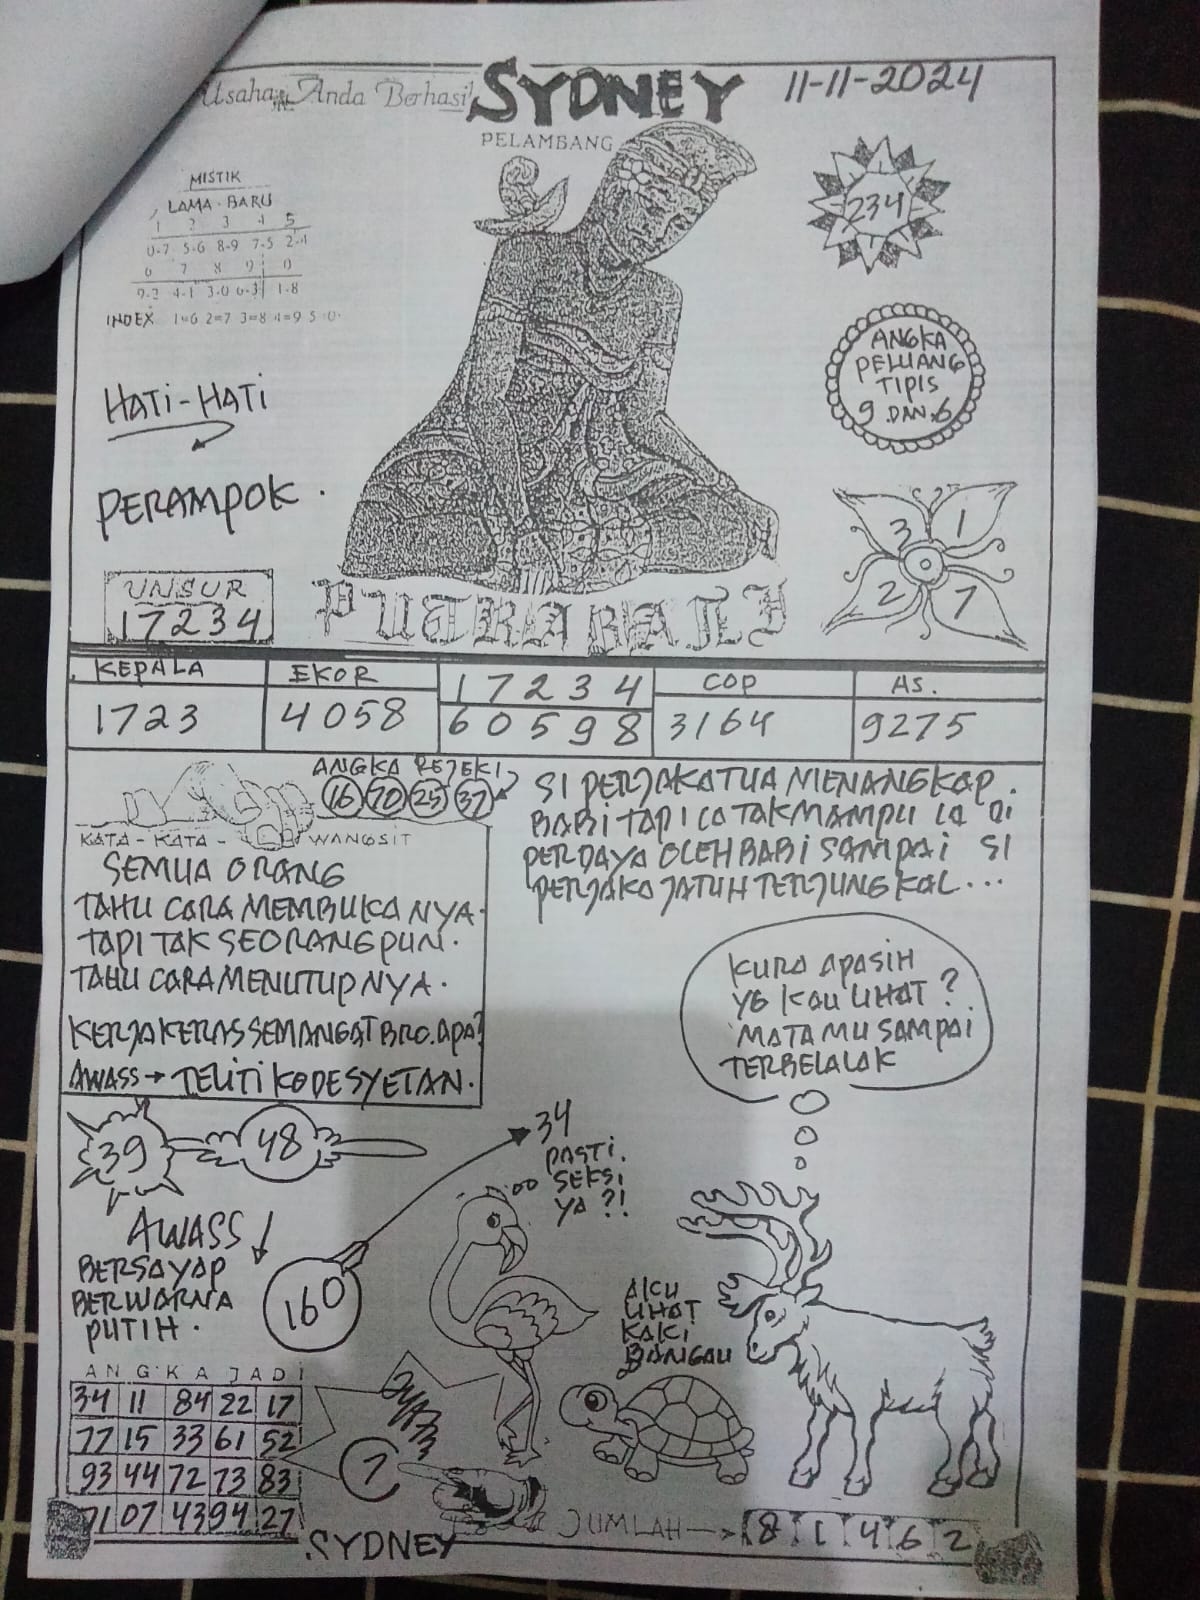 Usaha Anda Berhasil
SYDNEY
11-11-2024
PELAMBANG
MISTIK
LAMA - BARU
1 2 3 4 5
0-7 5-6 8-9 7-5 2-4
6 7 8 9 0
9-2 4-1 3-0 6-3 1-8
INDEX 1=6 2=7 3=8 4=9 5=0
234
ANGKA
PELUANG
TIPIS
9 DAN 6
HATI-HATI
PERAMPOK.
UNSUR
17234
3 1
2 7
PUTRA BALI
KEPALA EKOR 17234 COP AS.
1723 4058 60598 3164 9275
ANGKA REJEKI
16 70 25 37
KATA-KATA-WANGSIT
SEMUA ORANG
TAHU CARA MEMBUKANYA.
TAPI TAK SEORANGPUN.
TAHU CARA MENUTUPNYA.
KERJA KERAS SEMANGAT BRO. APA?
AWASS → TELITI KODE SYETAN.
SI PERJAKA TUA MENANGKAP.
BABI TAPI IA TAK MAMPU IA DI
PERDAYA OLEH BABI SAMPAI SI
PERJAKA JATUH TERJUNGKAL...
KURA APASIH
YG KAU LIHAT?
MATAMU SAMPAI
TERBELALAK
39 48
34
PASTI.
SEKSI
YA?!
AWASS
BERSAYAP
BERWARNA
PUTIH.
160
AKU
LIHAT
KAKI
BANGAU
ANGKA JADI
34 11 84 22 17
77 15 33 61 52
93 44 72 73 83
71 07 43 94 27
7
SYDNEY
JUMLAH → 8 1 4 6 2